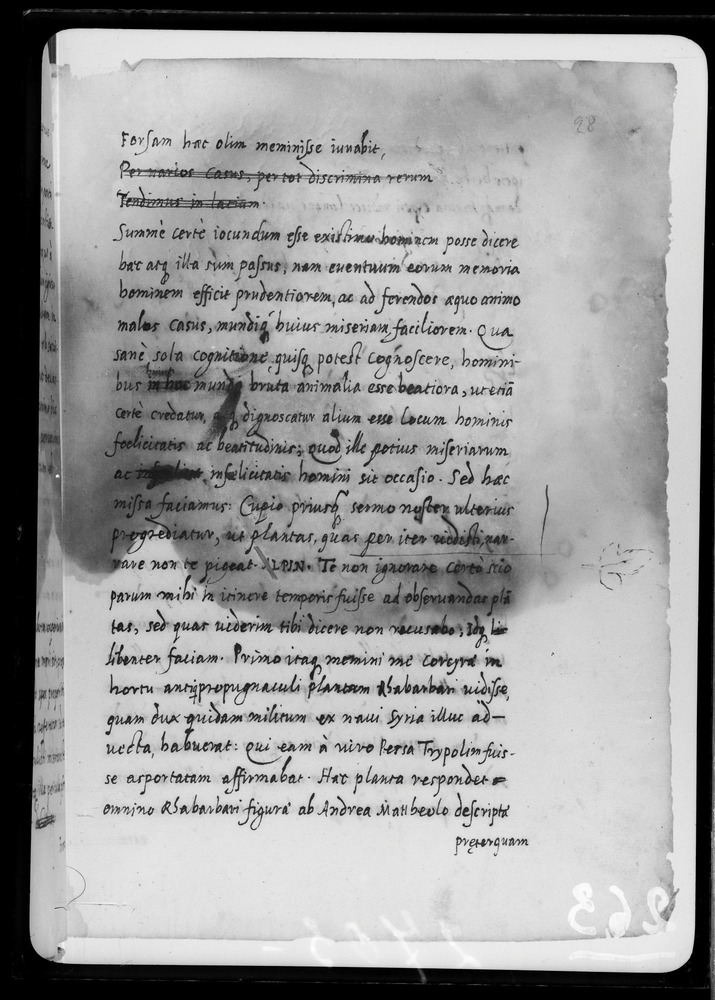 28
Forsam hæc olim meminisse iuvabit,
Per varios Casus, per tot discrimina rerum
Tendimus in latium.
Summè certè iocundum esse existimo hominem posse dicere
hæc atq illa sum passus, nam eventuum eorum memoria
hominem efficit prudentiorem, ac ad ferendos æquo animo
malos Casus, mundiq huius miseriam faciliorem. Qua
sanè sola cognitione quisq potest Cognoscere, homini-
bus in hoc mundo bruta animalia esse beatiora, ut etiā
certè credatur, dignoscatur alium esse Locum hominis
foelicitatis ac beatitudinis; quod ille potius miseriarum
ac infelicitatis homini sit occasio. Sed hæc
missa faciamus: Cupio priusq sermo noster ulterius
progrediatur, ut plantas, quas per iter vidisti, nar-
rare non te pigeat. ALPIN. Te non ignorare certo scio
parum mihi in itinere temporis fuisse ad observandas plā
tas, sed quas viderim tibi dicere non recusabo; Idq li-
libenter faciam. Primo itaq memini me Corcyræ in
hortu antiqi propugnaculi plantam Rhabarbari vidisse,
quam dux quidam militum ex navi Syria illuc ad-
vecta, habuerat: qui eam à viro Persa Trypolim fuis-
se asportatam affirmabat. Hæc planta respondet
omnino Rhabarbari figuræ ab Andrea Mattheolo descriptæ
pręterquam
263